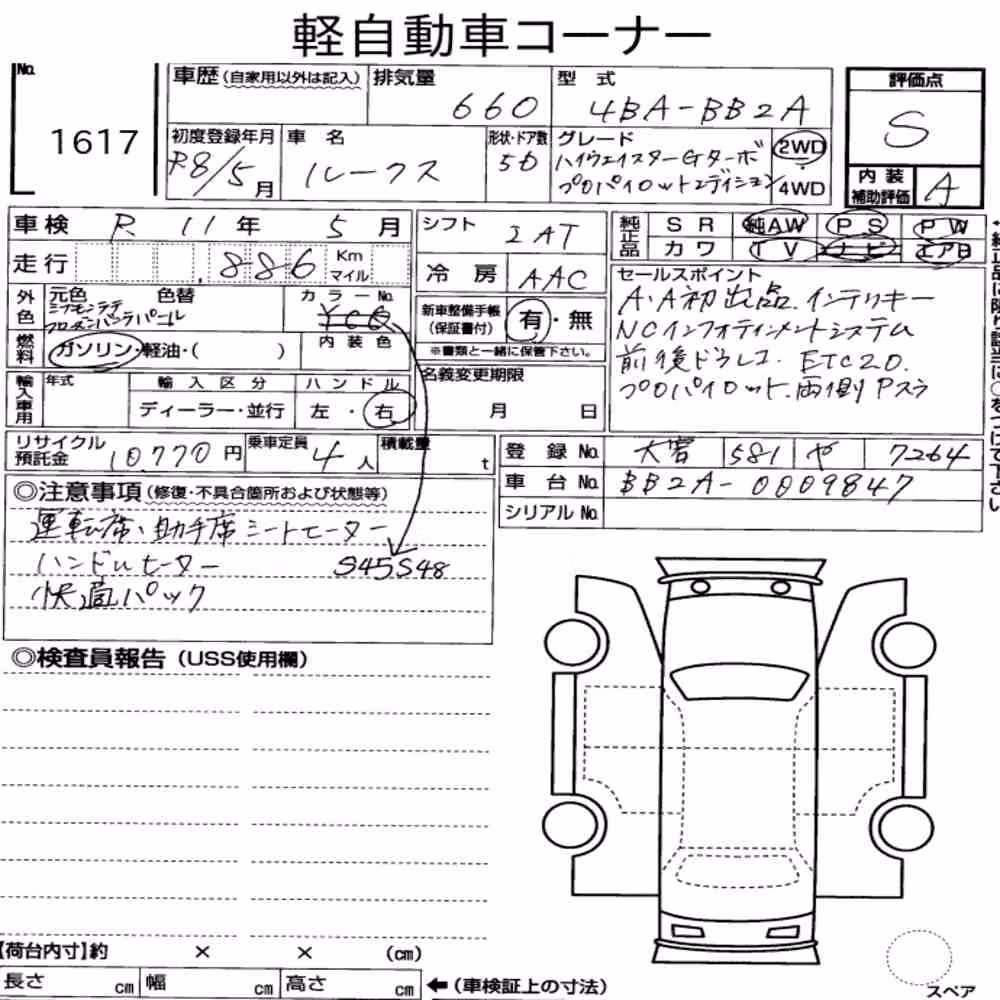 軽自動車コーナー
No. 1617
車歴(自家用以外は記入) 排気量 660 型式 4BA-BB2A 評価点 S
初度登録年月 R8/5月 車名 ルークス 形状・ドア数 5D グレード ハイウェイスターGターボ プロパイロットエディション 2WD 4WD
内装補助評価 A
車検 R 11年 5月
走行 886 Km マイル
シフト 2AT
冷房 AAC
純正品 SR 純AW PS PW
カワ TV ナビ エアB
外色 元色 色替 カラーNo.
フローズンバニラパール
内装色
燃料 ガソリン・軽油・( )
新車整備手帳(保証書付) 有・無
※書類と一緒に保管下さい。
セールスポイント
A・A初出品. インテリキー
NCインフォテインメントシステム
前後ドラレコ. ETC2.0.
プロパイロット. 両側Pスラ
輸入車用 年式 輸入区分 ハンドル
ディーラー・並行 左・右
名義変更期限
月 日
リサイクル預託金 10,770円 乗車定員 4人 積載量 t
登録No. 大宮 581 や 7264
車台No. BB2A-0009847
シリアルNo.
◎注意事項(修復・不具合箇所および状態等)
運転席、助手席シートヒーター
ハンドルヒーター S45S48
快適パック
◎検査員報告(USS使用欄)
【荷台内寸】約 × × (cm)
長さ cm 幅 cm 高さ cm ←(車検証上の寸法)
スペア